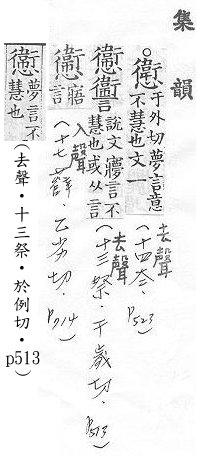 集韻
○㦣于外切夢言意不慧也文一
去聲(十四夳.P523)
㦣讏說文寱言不慧也或从言
去聲(十三祭.于歲切.P513)
㦣寱言
入聲(十七薛.乙劣切.P714)
㦣夢言不慧也
(去聲.十三祭.於例切.p513)